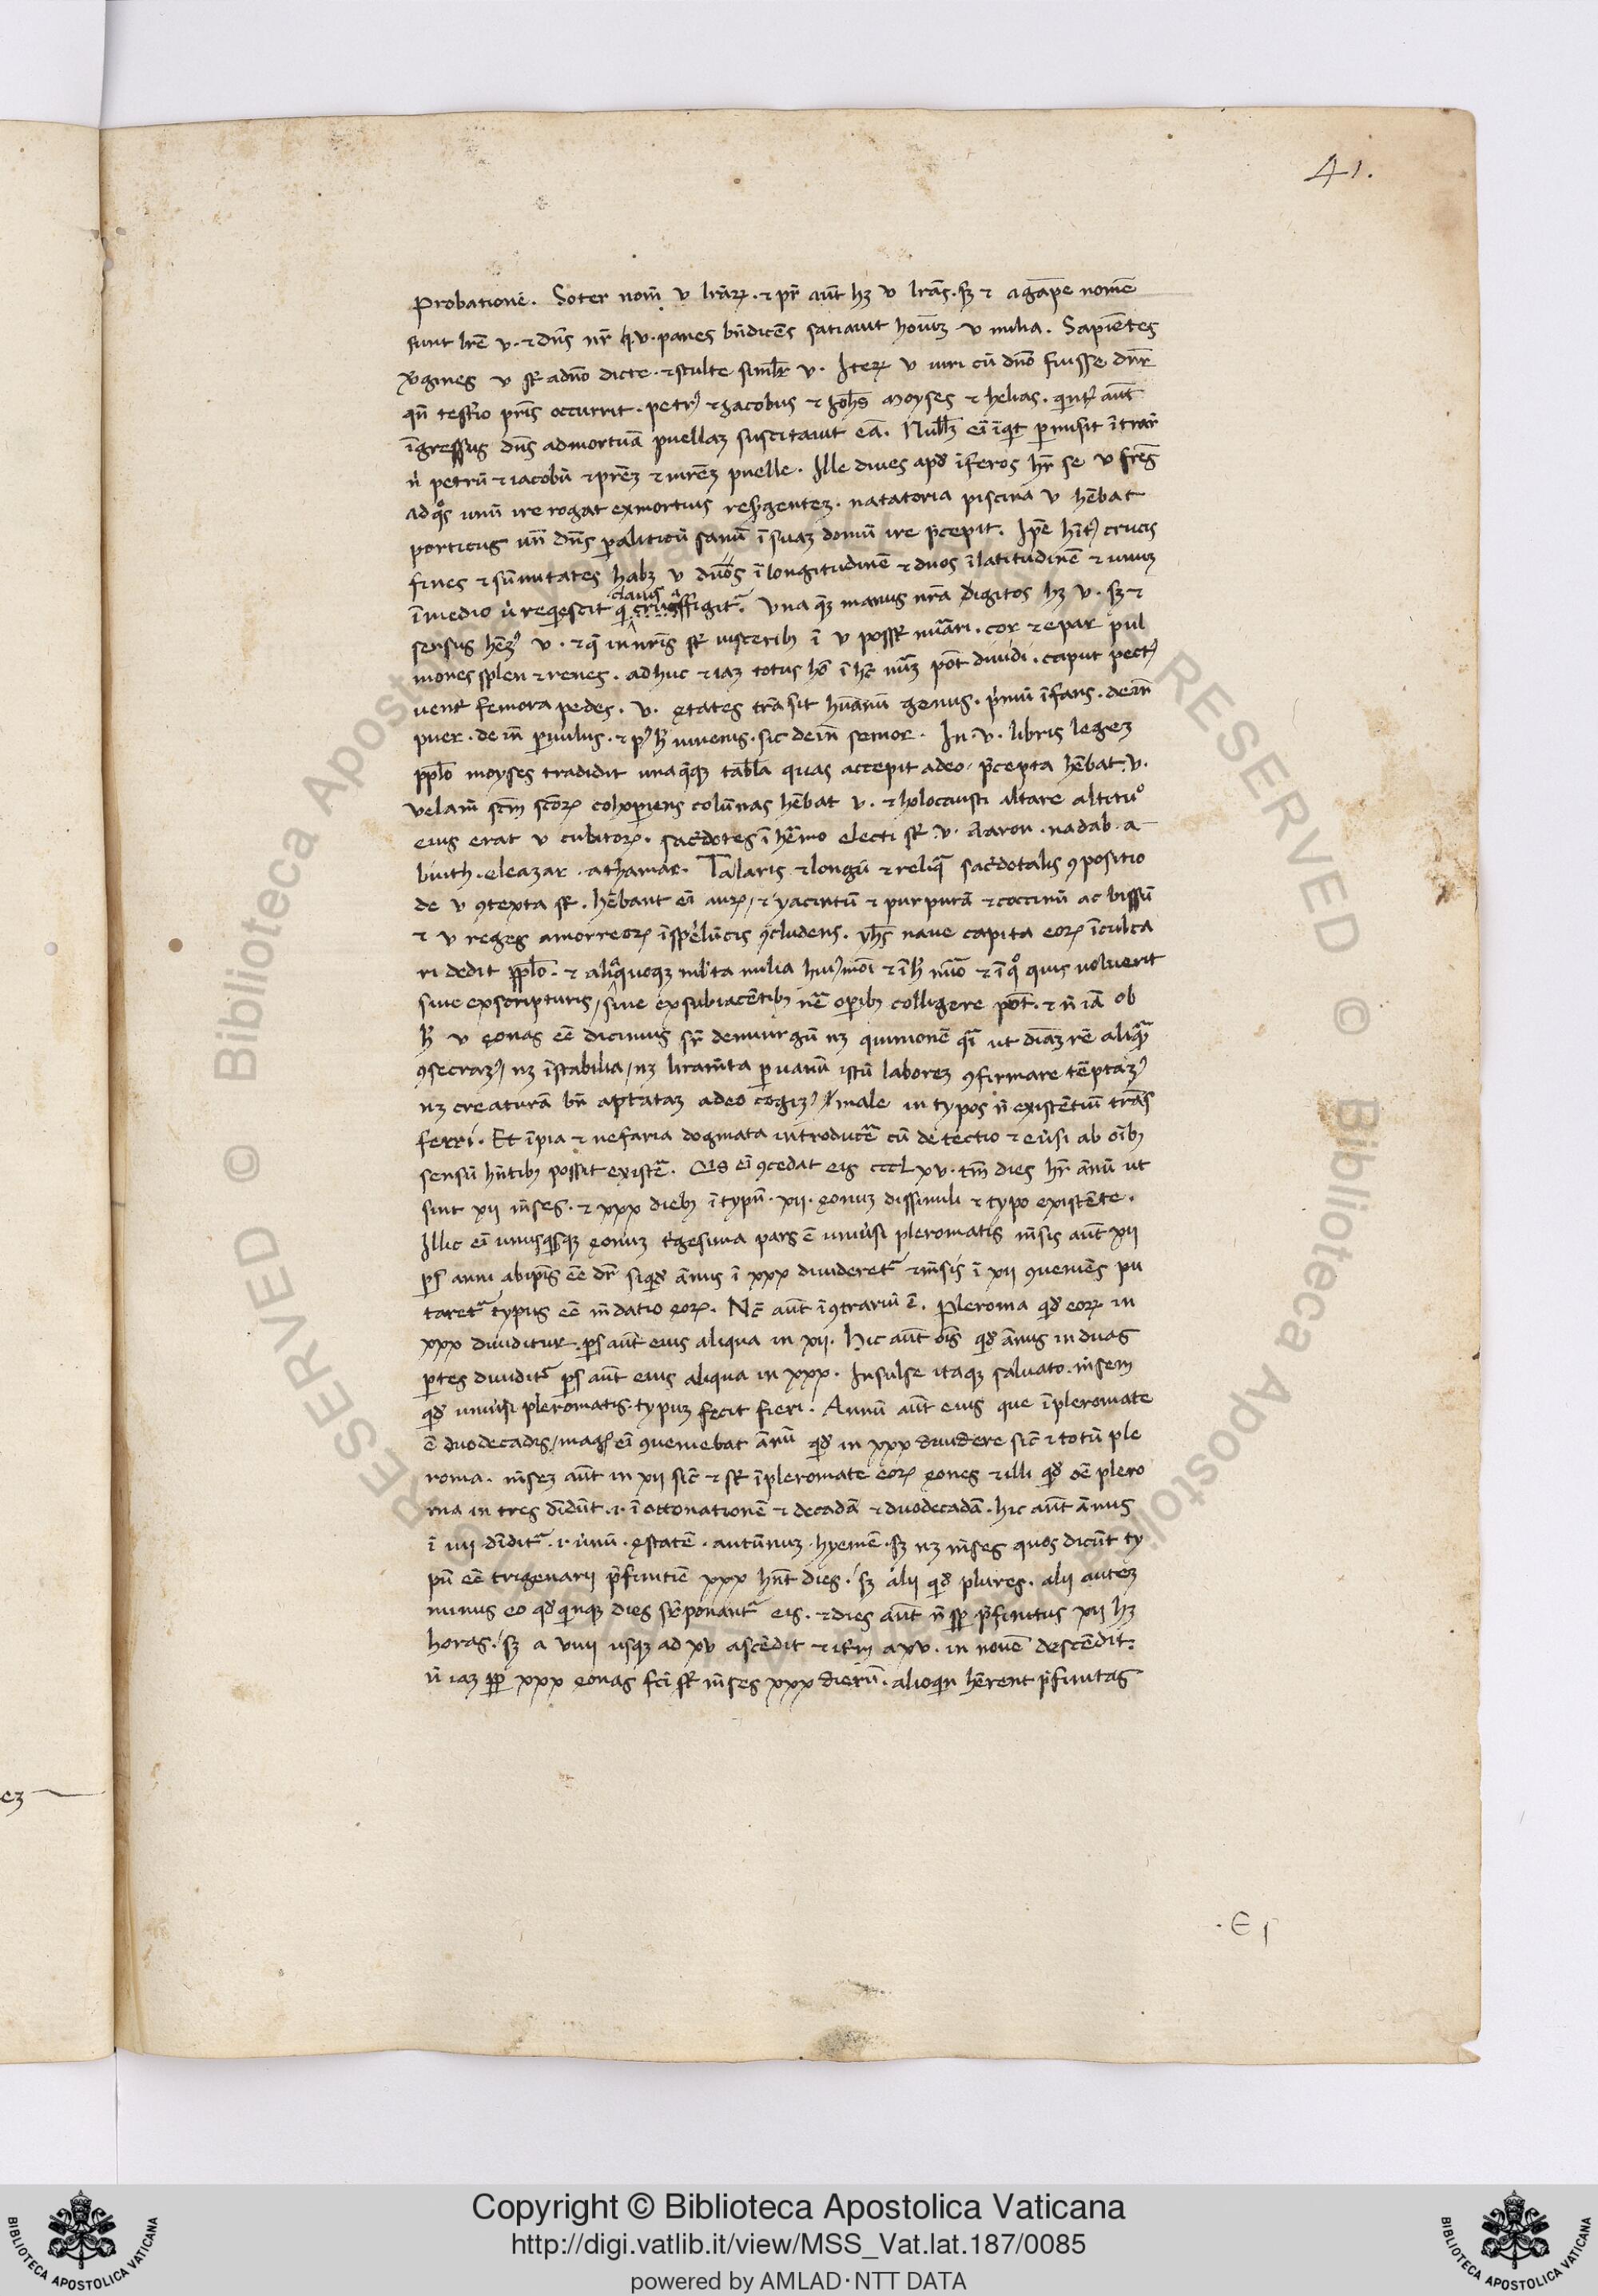 41.
probationē. Soter nom̄ v lrārꝝ. ⁊ pr̄ aūt hꝫ v lrās. sꝫ ⁊ agape nomē
sunt lrē v. ⁊ dn̄s nr̄ q. v. panes bn̄dicēs satiauit hoīuꝫ v milia. Sapiētes
v̄gines v sr̄ a dn̄o dicte. ⁊ stulte simlr̄ v. Iterꝝ v uiri cū dn̄o fuisse dn̄r
qn̄ testīo pr̄is occurrit. petrꝰ ⁊ Jacobus ⁊ Joh̄s moyses ⁊ helias. quint᷒ aūt
īgressus dn̄s ad mortuā puellaꝫ suscitauit eā. Nullꝫ eī īqit ꝑmisit ītrar̄
n̄ petrū ⁊ iacobū ⁊ pr̄eꝫ ⁊ mr̄eꝫ puelle. Ille diues apd̄ īferos hr̄ se v fr̄es
ad q̊s unū ire rogat ex mortuis resurgenteꝫ. natatoria piscina v hēbat
porticus un̄ dn̄s ꝑaliticū sanū ī suaꝫ domū ire p̄cepit. Ip̄e hītꝰ crucis
fines ⁊ sūmitates habꝫ v duos ī longitudinē ⁊ duos ī latitudinē ⁊ unuꝫ
ī medio u̇ reqescit q clauis figit᷑. Una q̄ꝫ manus nr̄a digitos hꝫ v. sꝫ ⁊
sensus hēꝫꝰ v. ⁊ q̄ in nr̄is sr̄ uisceribꝫ ī v possr̄ nūāri. cor ⁊ epar pul
mones splen ⁊ renes. adhuc ⁊ iaꝫ totus hō ī hc̄ nūꝫ pōt diuidi. caput pectꝰ
uent᷒ femora pedes. v. ętates trāsit hūanū genus. p̄mū īfans. dein̄
puer. dein̄ ꝑuulus. ⁊ pꝰ h̄ iuuenis. sic dein̄ senior. In. v. libris legeꝫ
pplō moyses tradidit unaq̄qꝫ tabl̄a quas accepit a deo. p̄cepta hēbat. v.
velam̄ sc̄m sc̄orꝝ cohopiens colūnas hēbat v. ⁊ holocausti altare altituº
eius erat v cubitorꝝ. sac̄dotes ī hēmo electi sr̄. v. Aaron. nadab. a-
biuth. eleazar. athamar. Talaris ⁊ longū ⁊ reliqa sac̄dotalis ꝯpositio
de v ꝯtexta sr̄. hēbant eī aurꝝ/ ⁊ yacintū ⁊ purpurā ⁊ coccinū ac bissū
⁊ v reges amorreorꝝ ī spelūcis ꝯcludens. yh̄s naue capita eorꝝ īculca
ri dedit pplō. ⁊ aliqa quoqꝫ ml̄ta milia huiꝰmōi ⁊ ī h̄ nūo ⁊ ī qº quis uoluerit
siue ex scripturis/ siue ex subiacētibꝫ nr̄e oꝑibꝫ colligere pōt. ⁊ n̄ iā ob
h̄ v ęonas eē dicimus sr̄ demiurgū nꝫ quinionē qāi ut diāꝫ rē aliqā
ꝯsecraꝫꝰ/ nꝫ īstabilia/ nꝫ liram̄ta ꝑ uanū istū laboreꝫ ꝯfirmare tēptaꝫꝰ
nꝫ creaturā bn̄ aptataꝫ a deo cogiꝫꝰ male in typos n̄ existētiū trās
ferri. Et īpia ⁊ nefaria dogmata introducēa cū detectio ⁊ euersi ab oībꝫ
sensū hn̄tibꝫ possit existē. Qis eī ꝯcedat eis ccclxv. tm̄ dies hr̄ ānū ut
sint xii mēses. ⁊ xxx diebꝫ ī typū. xii. ęonuꝫ dissimili ⁊ typo existēte.
Illic eī unusqsqꝫ ęonuꝫ t᷑gesima pars ē uniu̇si pleromatis mēsis aūt xii
ꝑs anni ab ip̄is eē dr̄ siqd̄ ānus ī xxx diuideret᷑ ⁊ mēsis ī xii ꝯueniēs pu
taret᷑ typus eē mēdatio eorꝝ. Nc̄ aūt ī ꝯtrariū ē. pleroma qd̄ eorꝝ in
xxx diuiditur. ꝑs aūt eius aliqua in xii. hic aūt oīs qd̄ ānus in duas
ꝑtes diuidit᷑ ꝑs aūt eius aliqua in xxx. Insulse itaqꝫ saluato. mēsem
qd̄ uniu̇si pleromatis typuꝫ fecit fieri. Annū aūt eius que ī pleromate
ē duodecadis/ magꝭ eī ꝯueniebat ānū qd̄ in xxx diuidere sic̄ ⁊ totū ple
roma. mēseꝫ aūt in xii sic̄ ⁊ sr̄ ī pleromate eorꝝ ęones ⁊ illi qd̄ oē plero
ma in tres diīdūt. i. ī ottonationē ⁊ decadā ⁊ duodecadā. hic aūt ānus
ī iiii diīdit᷑. i. u̇nū. ęstatē. autūnuꝫ. hyemē. sꝫ nꝫ mēses quos dicūt ty
pū eē trigenarii p̄finitiē xxx hn̄t dies. sꝫ alii qd̄ plures. alii auteꝫ
minus eo qd̄ quinqꝫ dies sr̄ponant᷑ eis. ⁊ dies aūt n̄ sꝑ p̄finitus xii hꝫ
horas. sꝫ a viiii usqꝫ ad xv ascēdit ⁊ it᷒m a xv. in nouē descēdit.
n̄ iaꝫ ppr̄ xxx ęonas fc̄i sr̄ mēses xxx dierū. alioqin hērent p̄finitas
.E 1
Copyright © Biblioteca Apostolica Vaticana
http://digi.vatlib.it/view/MSS_Vat.lat.187/0085
powered by AMLAD·NTT DATA